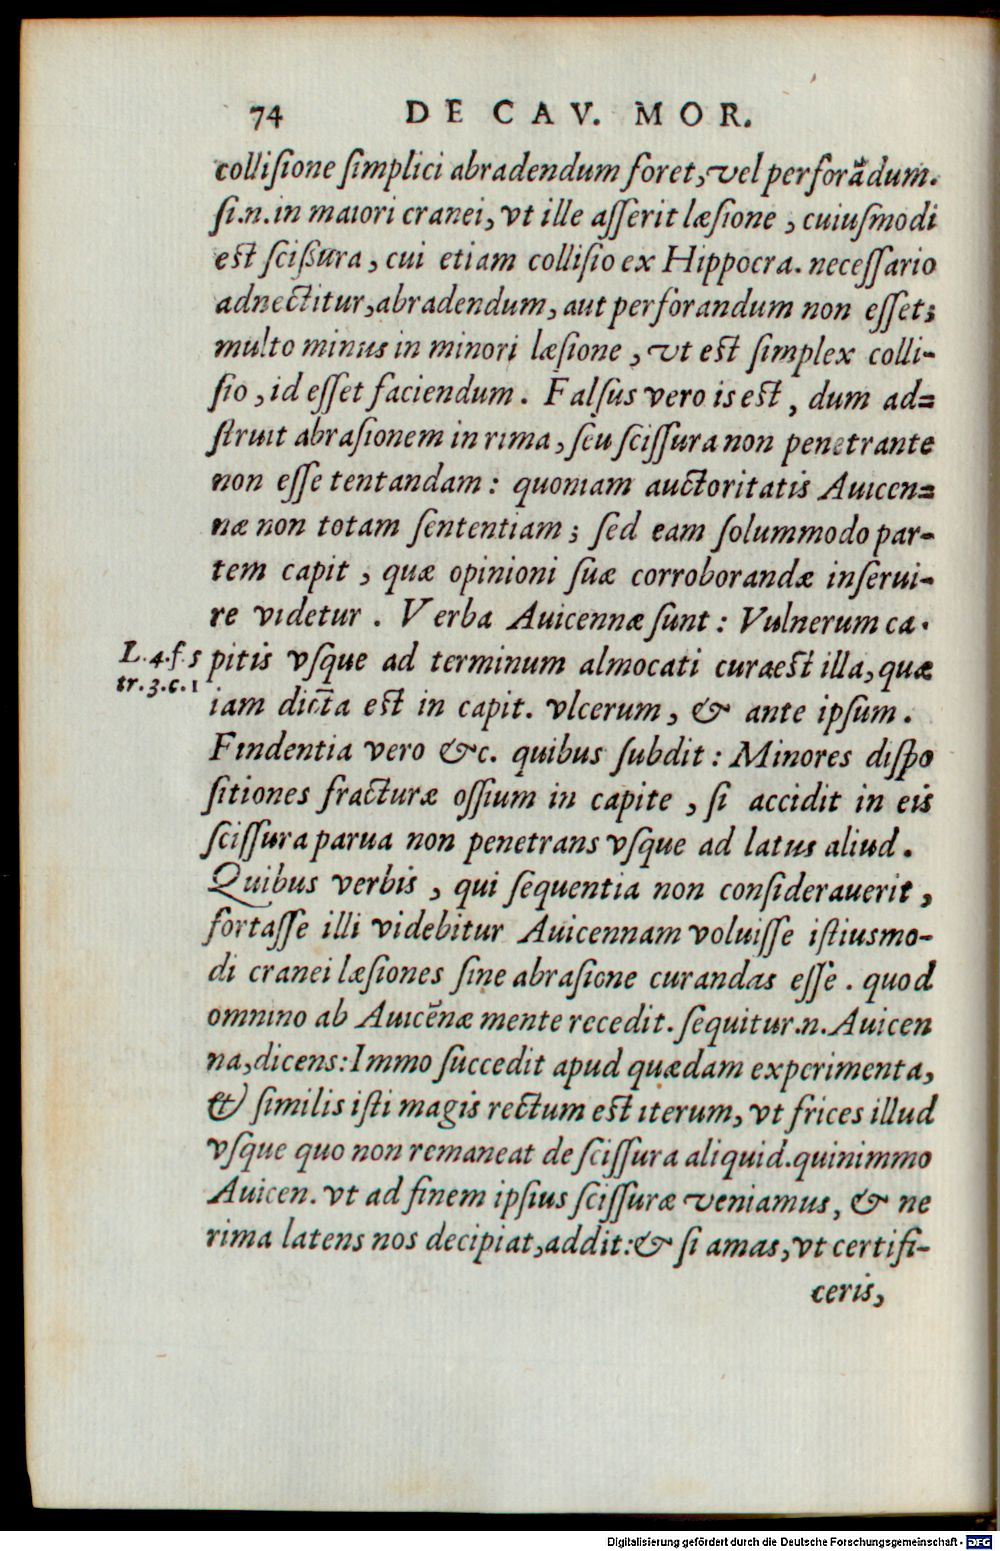 74 DE CAV. MOR.
collisione simplici abradendum foret, vel perforādum.
si.n.in maiori cranei, vt ille asserit læsione, cuiusmodi
est scißura, cui etiam collisio ex Hippocra. necessario
adnectitur, abradendum, aut perforandum non esset;
multo minus in minori læsione, vt est simplex colli-
sio, id esset faciendum. Falsus vero is est, dum ad=
struit abrasionem in rima, seu scissura non penetrante
non esse tentandam: quoniam auctoritatis Auicen=
næ non totam sententiam; sed eam solummodo par-
tem capit, quæ opinioni suæ corroborandæ inserui-
re videtur. Verba Auicennæ sunt: Vulnerum ca-
L.4.f.5 pitis vsque ad terminum almocati cura est illa, quæ
tr.3.c.1 iam dicta est in capit. vlcerum, & ante ipsum.
Findentia vero &c. quibus subdit: Minores dispo
sitiones fracturæ ossium in capite, si accidit in eis
scissura parua non penetrans vsque ad latus aliud.
Quibus verbis, qui sequentia non considerauerit,
fortasse illi videbitur Auicennam voluisse istiusmo-
di cranei læsiones sine abrasione curandas esse. quod
omnino ab Auicēnæ mente recedit. sequitur.n. Auicen
na, dicens: Immo succedit apud quædam experimenta,
& similis isti magis rectum est iterum, vt frices illud
vsque quo non remaneat de scissura aliquid. quinimmo
Auicen. vt ad finem ipsius scissuræ veniamus, & ne
rima latens nos decipiat, addit: & si amas, vt certifi-
ceris,
Digitalisierung gefördert durch die Deutsche Forschungsgemeinschaft - DFG